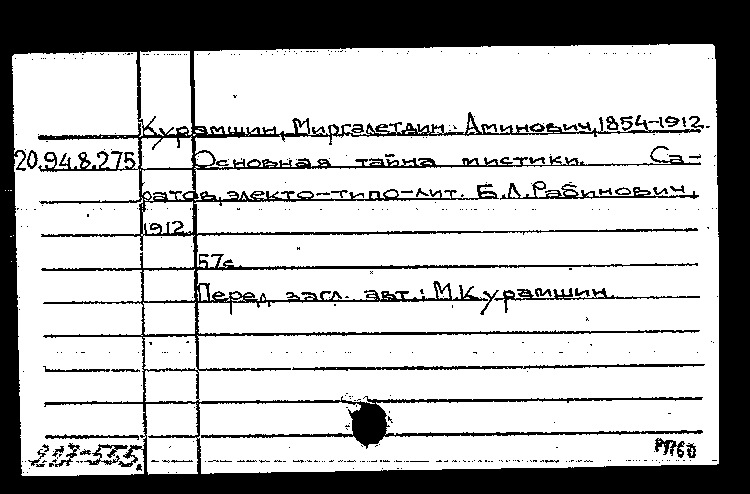 Курамшин, Миргалетдин Аминович, 1854-1912.
20.94.8.275 Основная тайна мистики. Са-
ратов, электо-типо-лит. Б.Л.Рабинович,
1912.
57с.
Перед загл. авт.: М.Курамшин.